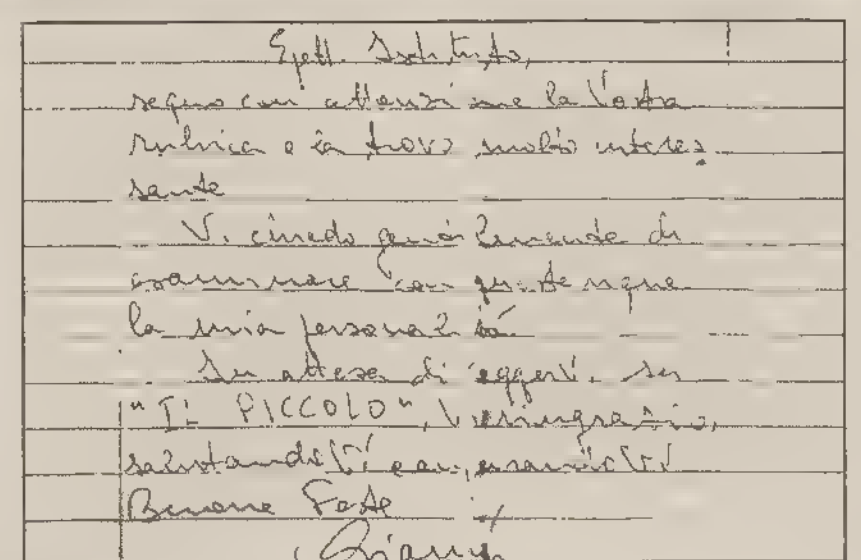 Spett. Istituto,
seguo con attenzione la Vostra
rubrica e la trovo molto interes
sante
Vi chiedo gentilmente di
esaminare con queste righe
la mia personalità
In attesa di leggerVi su
"IL PICCOLO", Vi ringrazio,
salutandoVi e
Buone Feste
Gianni